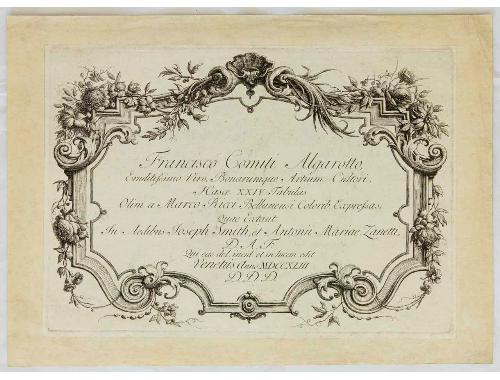 Francisco Comiti Algarotto,
Eruditissimo Viro, Bonarumque Artium Cultori,
Hasce XXIV Tabulas
Olim a Marco Ricci Bellunensi Coloribus Expressas,
Quae Extant
In Aedibus Joseph Smith, et Antonii Mariae Zanetti,
D. A. F.
Qui eas del. incid. et in lucem edit
Venetiis Anno MDCCXLIII
D.D.D.